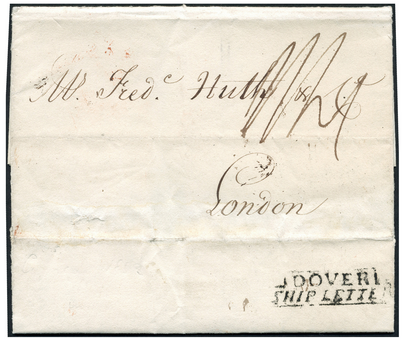 Mr. Fredc. Huth & Co
London
DOVER
SHIP LETTE